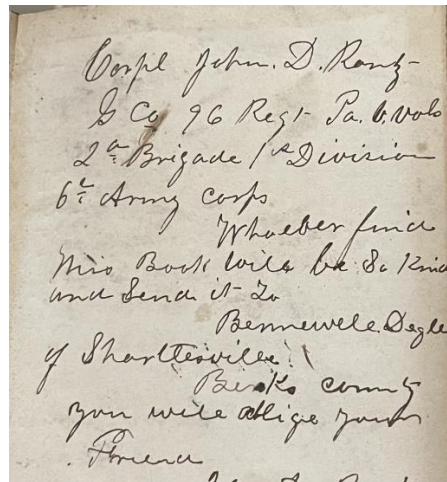 Corpl John. D. Rantz
G Co 96 Regt Pa. v. vols
2d Brigade 1st Division
6th Army corps
Whoeber find
this Book will be So Kind
and Send it To
Bennewele. Degle
of Shartlesville
Berks county
you will oblige your
Friend